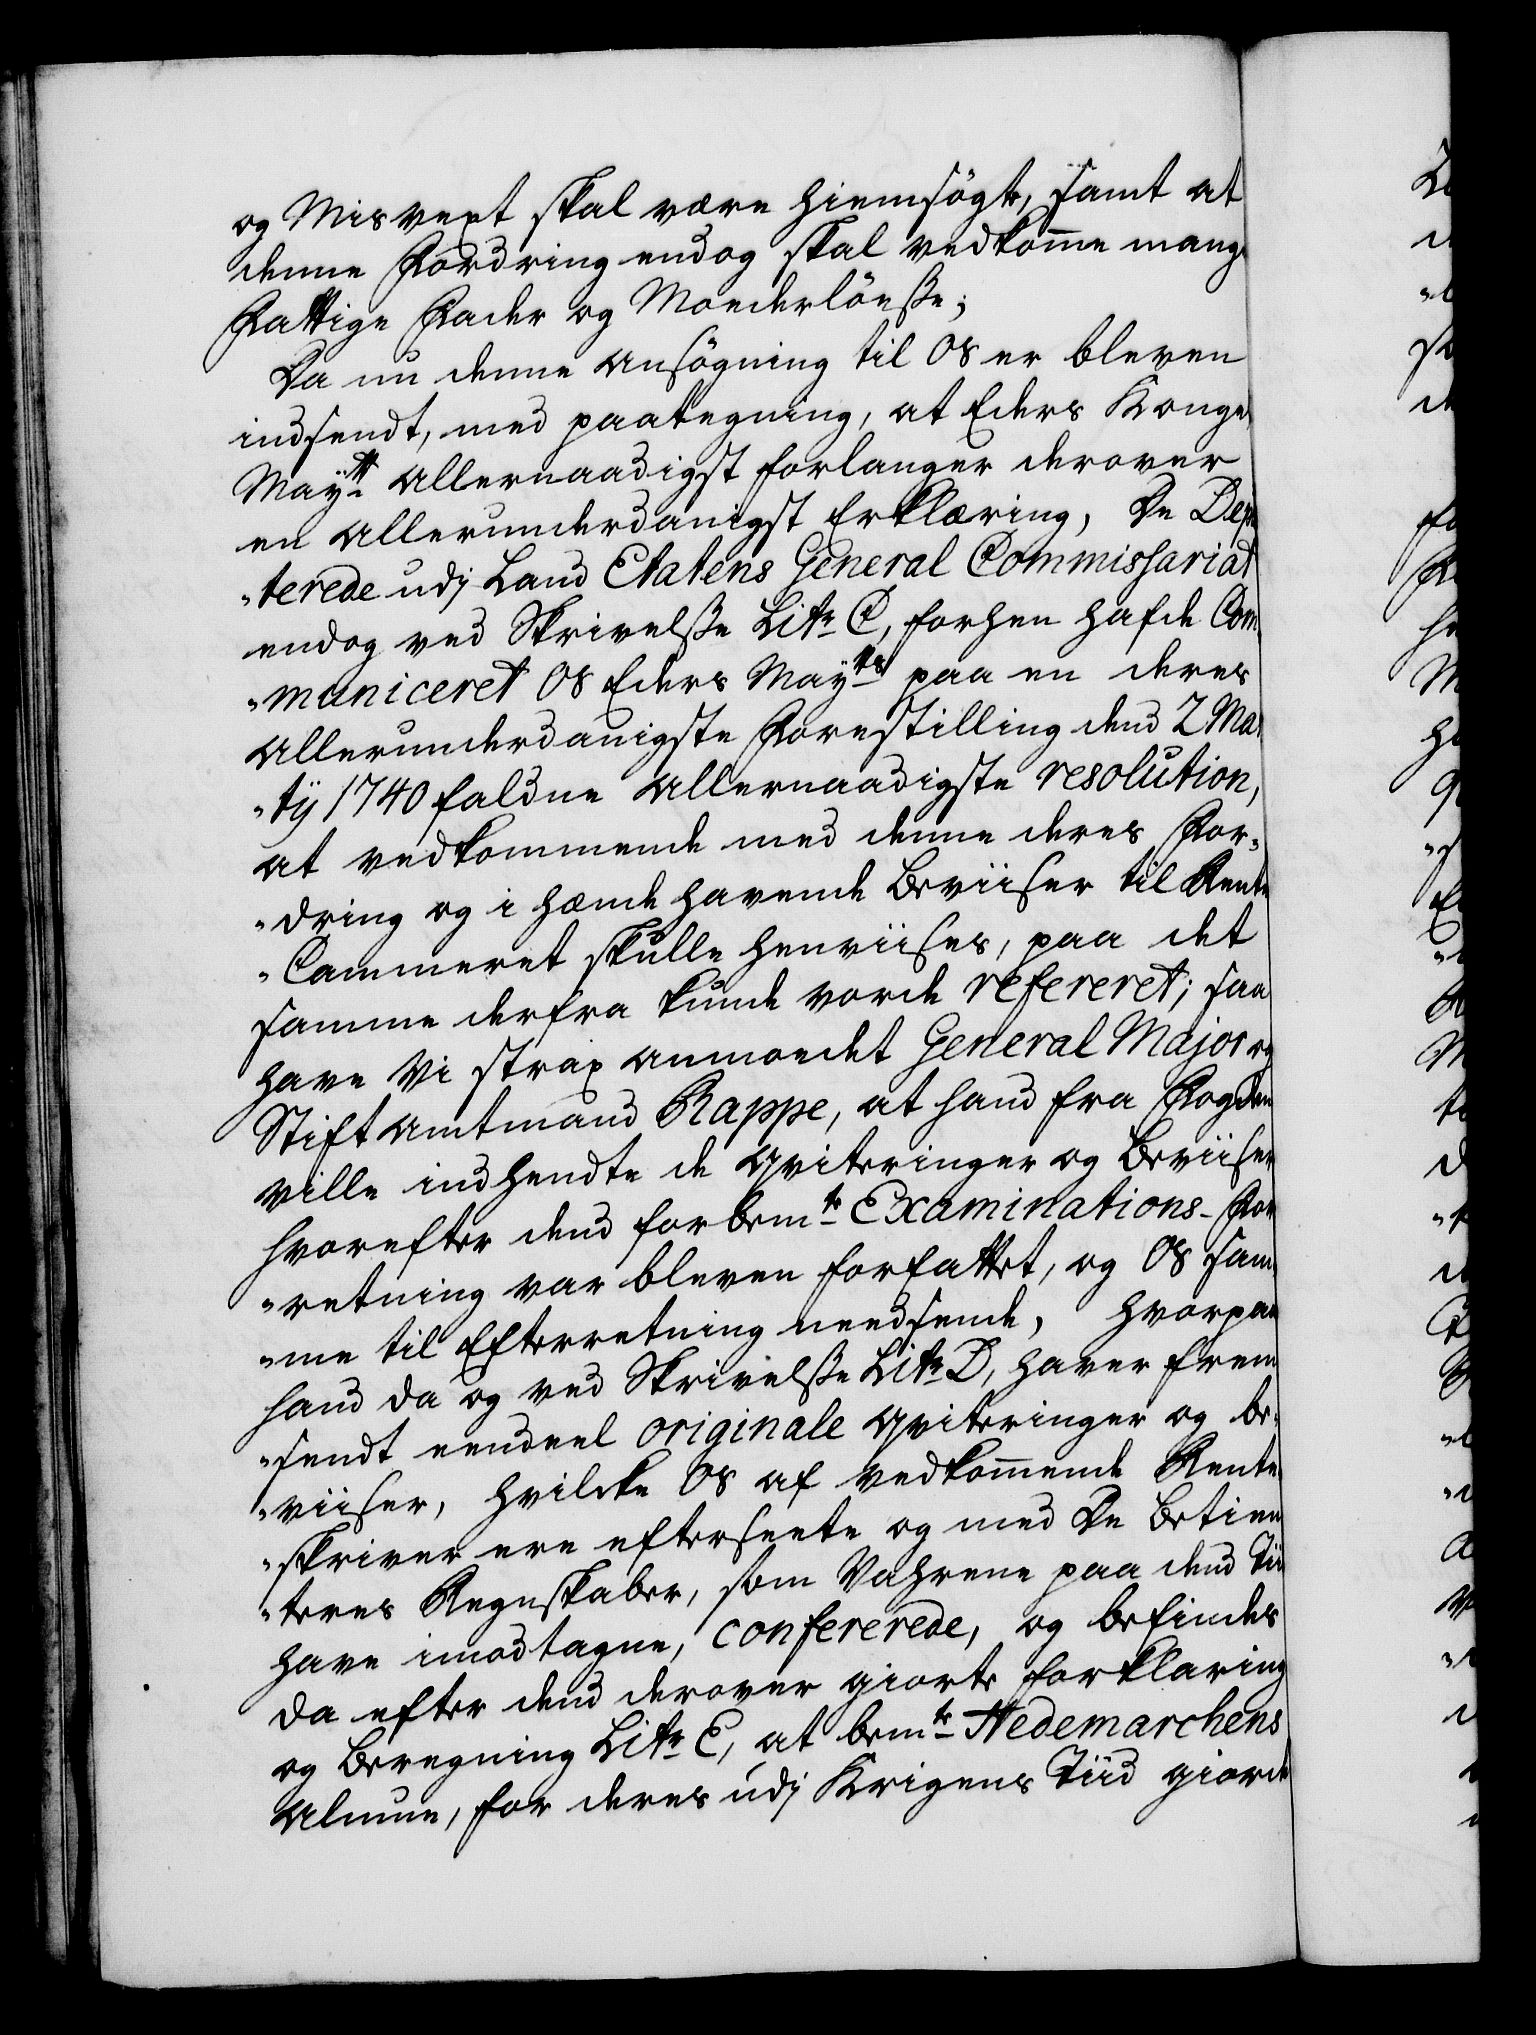 og Misvext skal være hiemsögt, samt at
denne Fordring endog skal vedkom̅e mange
Fattige Fader og Moederlöeße;
Da nu denne Ansögning til os er bleven
indsendt, med paategning, at Eders Konge
Maÿtt allernaadigst forlanger derover
en allerunderdanigst Erklæring, De Depu
"terede udj Land Etatens General Commissariat
endog ved Skrivelße Litr C, forhen hafde Com
"municeret os Eders Maÿts paa en deres
allerunderdanigste Forestilling dend 2 Mar
"tÿ 1740 faldne allernaadigste resolution,
at vedkommende med denne deres For¬
"dring og i hænde havende Beviiser til Rente
"Cammeret skulle henviises, paa det
samme derfra kunde vorde refereret; saa
have Vi strax anmoedet General Major og
Stift Amtmand Rappe, at hand fra Fogden
ville indhendte de Qviteringer og Beviiser
hvorefter dend forbemte Examinations-For
"retning var bleven forfattet, og os sam
"me til Efterretning needsende, hvorpaa
hand da og ved Skrivelße Litr D, haver frem
"sendt eendeel originale Qviteringer og be¬
"viiser, hvilcke os af vedkom̅ende Rente
"skriver ere efterseete og med De Betien
"teres Regnskaber, som Vahrene paa dend Tiid
have imodtagne, confererede, og befindes
da efter dend derover giorte forklaring
og Beregning Litr E, at bemte Hedemarchens
Almue, for deres udj Krigens Tiid giorde